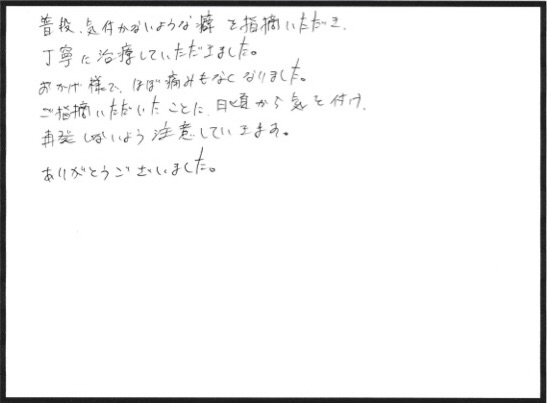 普段、気付かないような癖を指摘いただき、
丁寧に治療していただきました。
おかげ様で、ほぼ痛みもなくなりました。
ご指摘いただいたことに、日頃から気を付け、
再発しないよう注意していきます。
ありがとうございました。